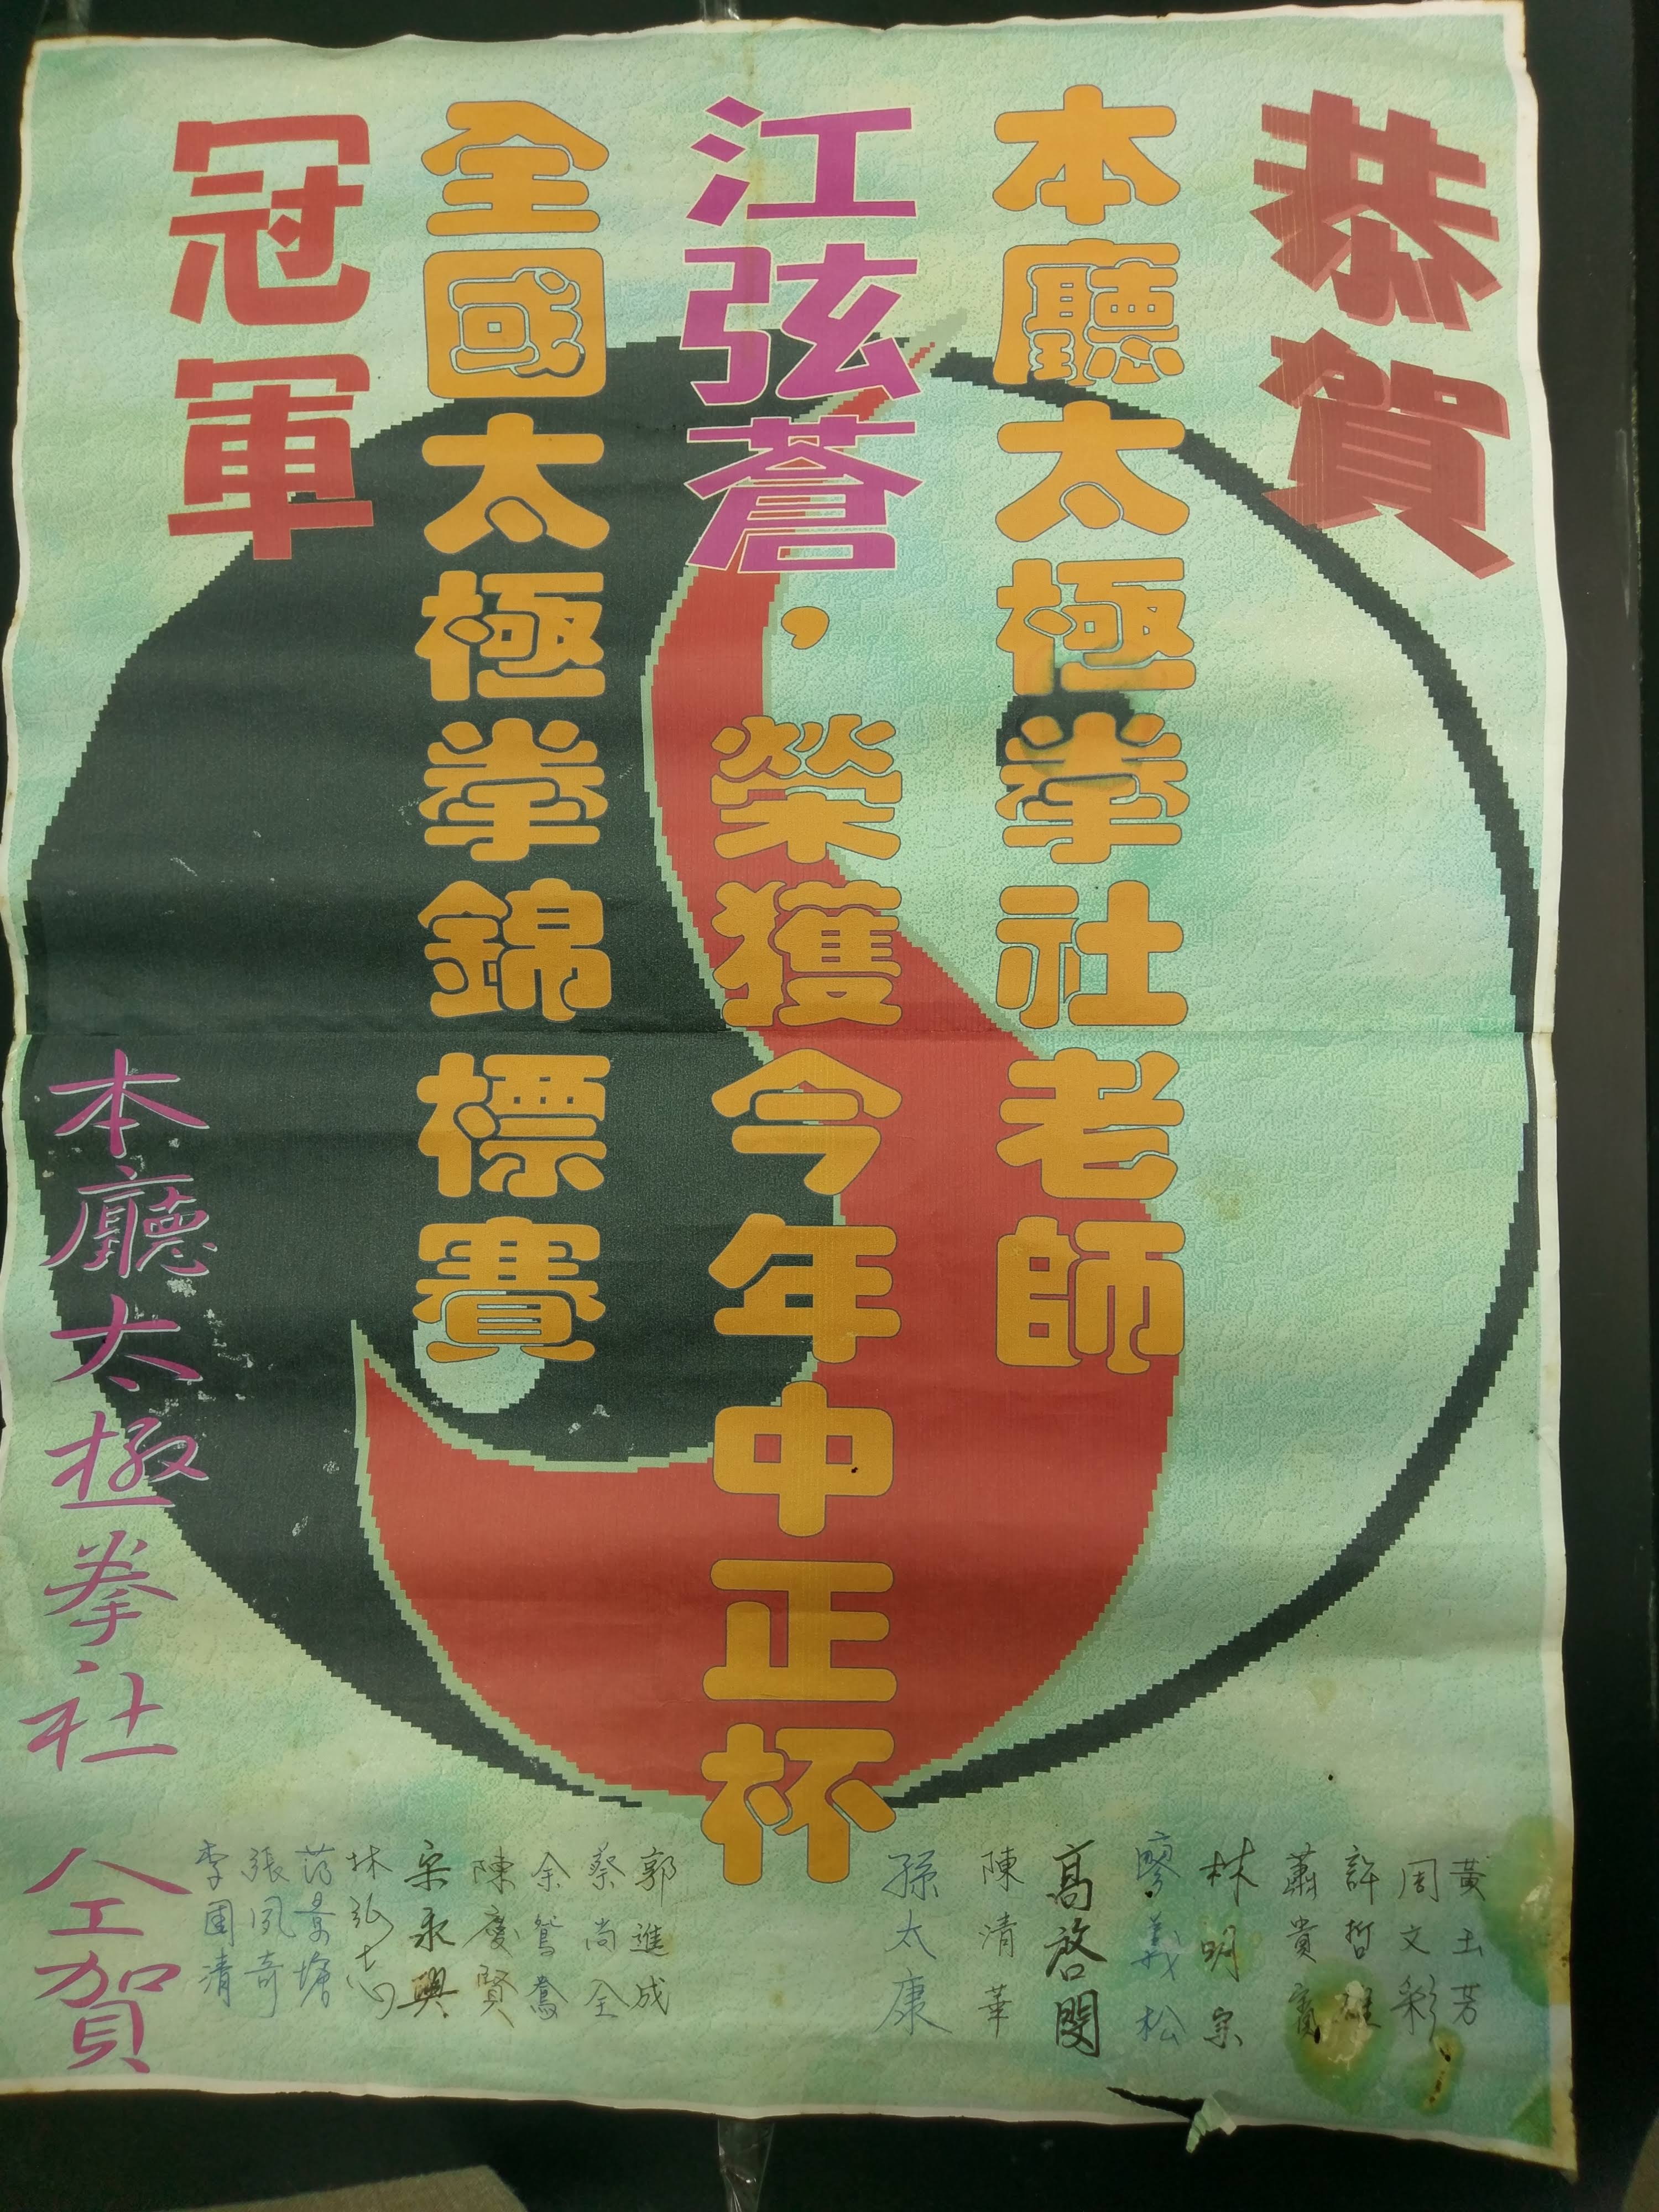 恭賀
本廳太極拳社老師
江弦蒼，榮獲今年中正杯
全國太極拳錦標賽
冠軍
黃玉芳
周文彩
許哲雄
蕭貴寶
林明宗
廖義松
高啓閔
陳清華
孫太康
郭進成
蔡尚全
余鴛鴦
陳慶賢
宋永興
林弘志
張夙奇
李國清
本廳太極拳社
仝賀